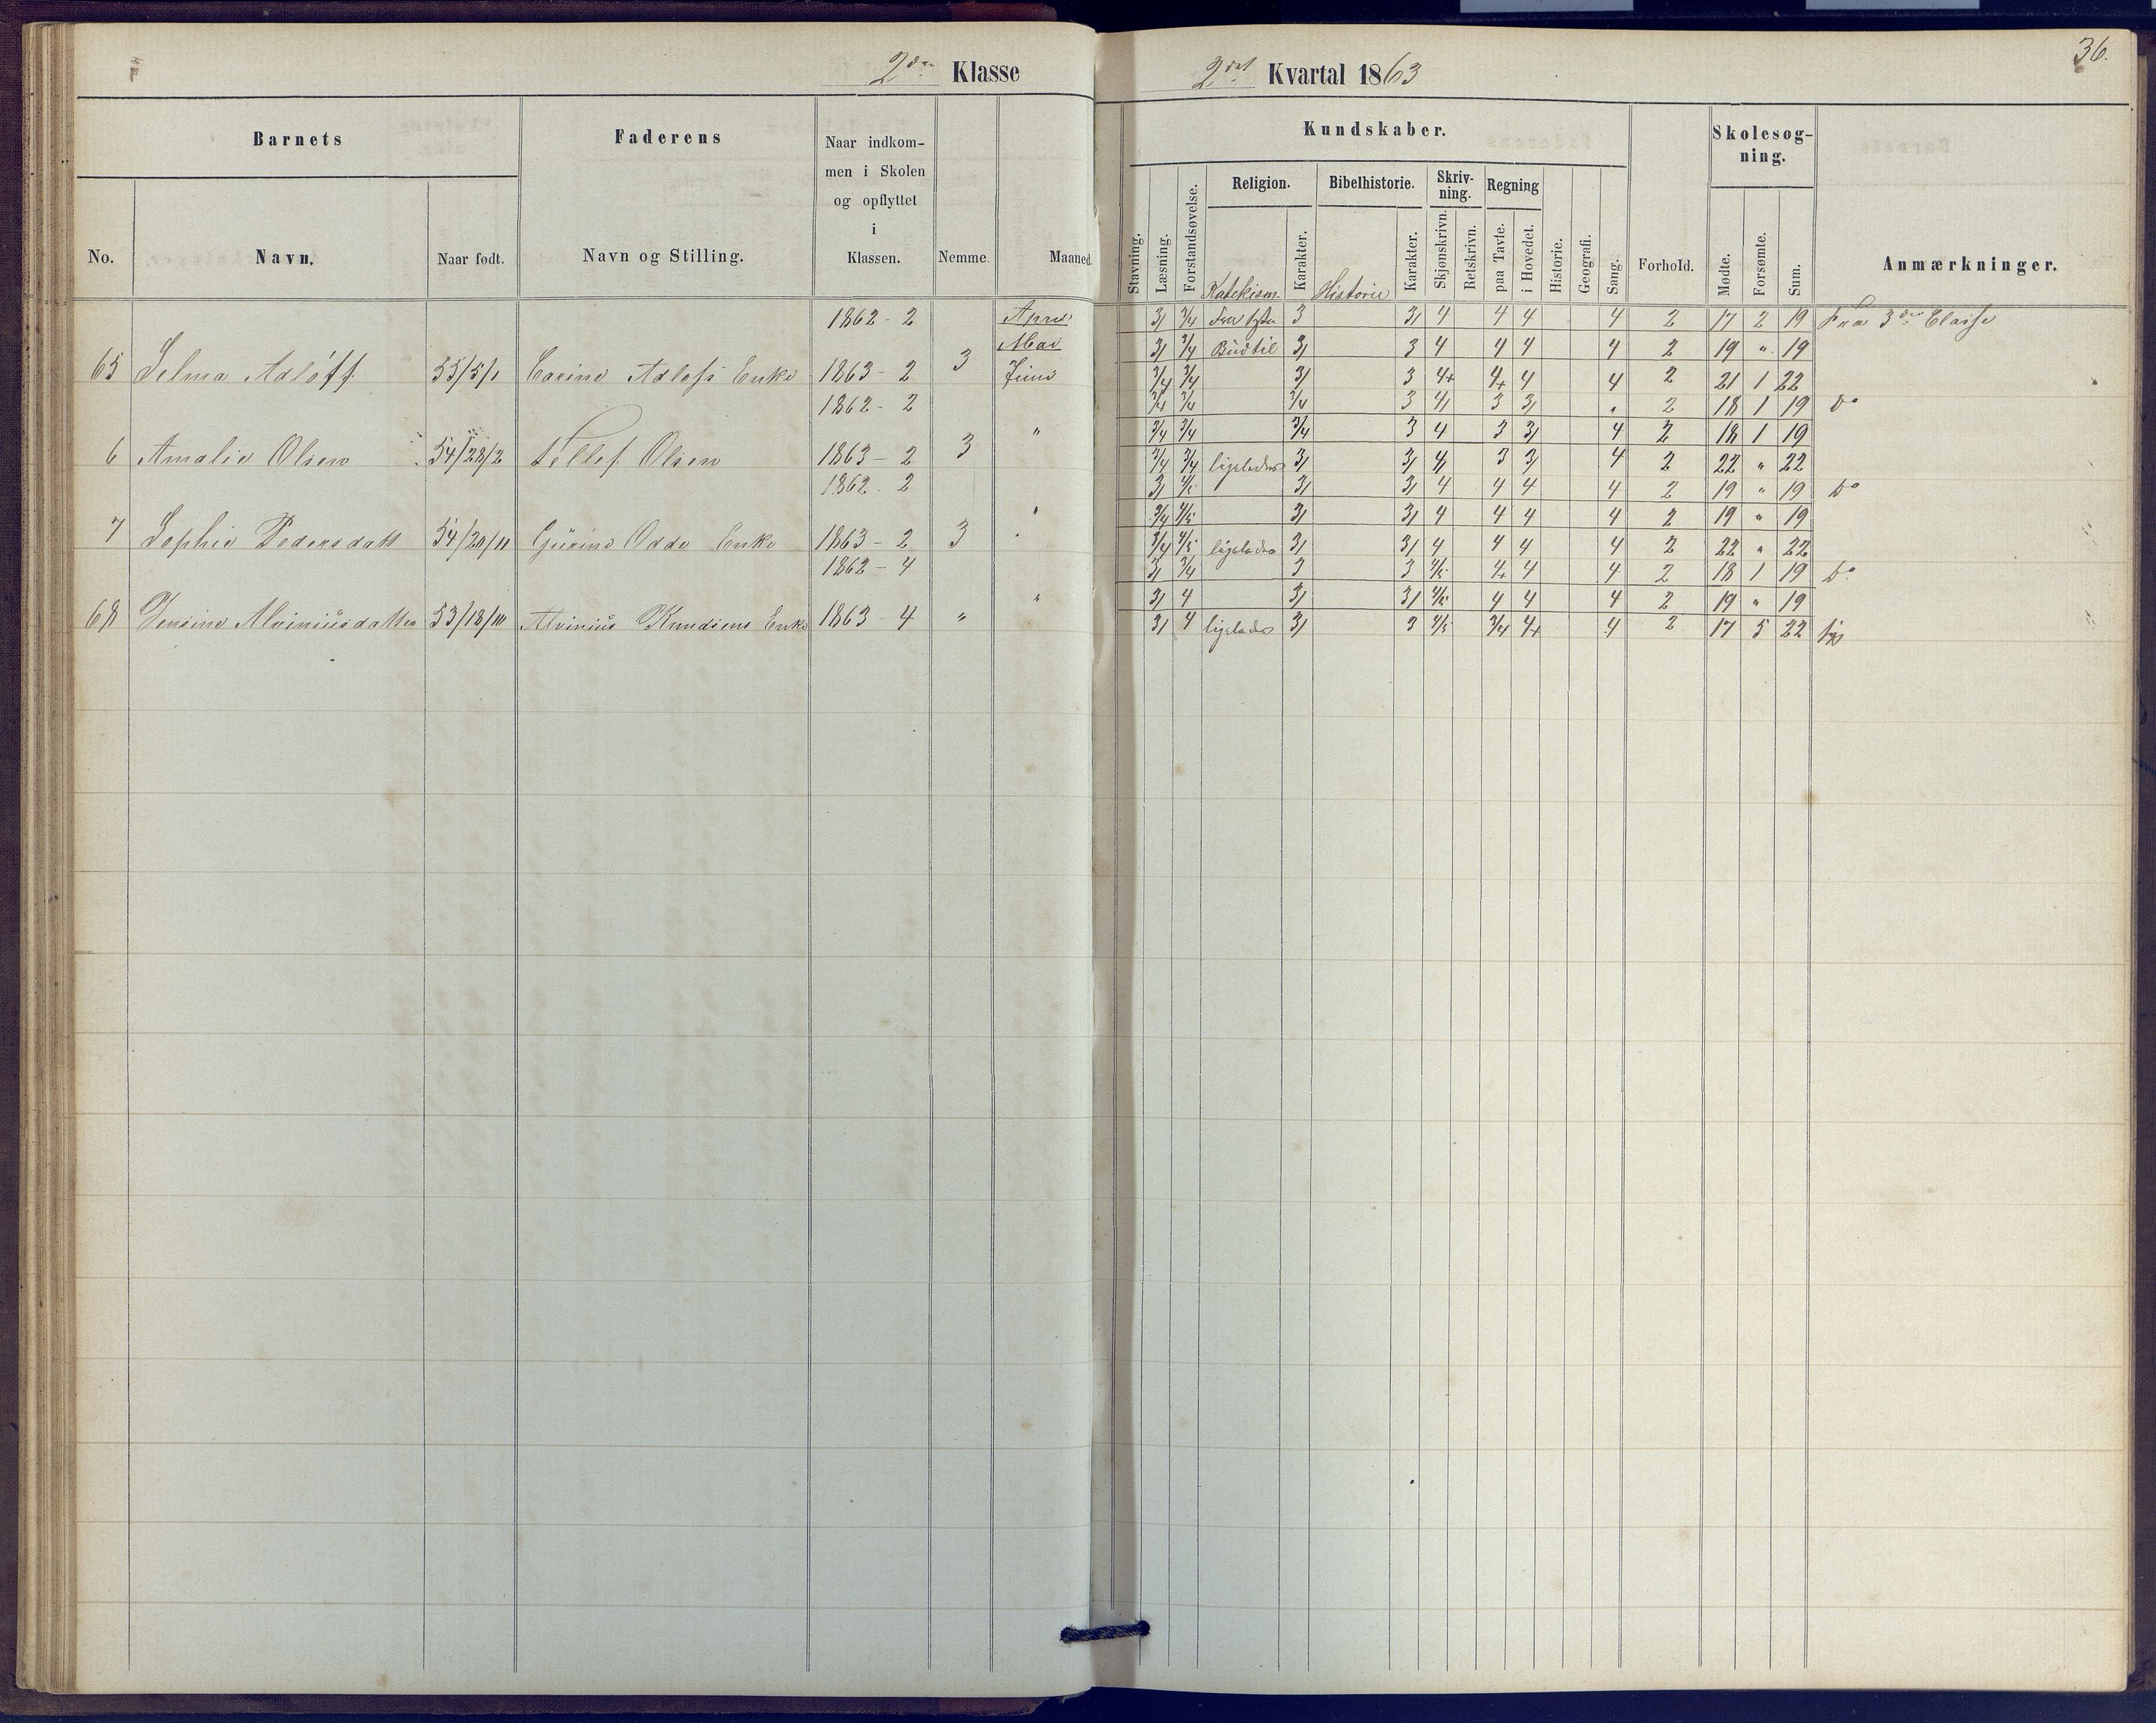 36.
2den Klasse
2det Kvartal 1863
Barnets
Faderens
Naar indkom-
men i Skolen
og opflyttet
i
Klassen.
No.
Navn.
Naar født.
Navn og Stilling.
Nemme.
Maaned.
Kundskaber.
Skolesøg-
ning.
Religion.
Bibelhistorie.
Skriv-
ning.
Regning
Stavning.
Læsning.
Forstandsøvelse.
Katekism.
Karakter.
Historie
Karakter.
Skjønskrivn.
Retskrivn.
paa Tavle.
i Hovedet.
Historie.
Geografi.
Sang.
Forhold.
Mødte.
Forsømte.
Sum.
Anmærkninger.
1862 - 2 April 3/ 3/4 3 3/ 4 4 4 4 2 17 2 19 Fra 3die Classe
Mai 3/ 3/4 Budtil 3/ 3 4 4 4 4 2 19 " 19
65 Selma Adloff 53/5/1 Carine Adlofs Enke 1863 - 2 3 Juni 3/4 3/4 3/ 3 4+ 4+ 4 4 2 21 1 22
1862 - 2 3/4 3/4 3/4 3 4/ 3 3/ " 2 18 1 19 do
" 3/4 3/4 3/4 3 4 3 3/ 4 2 18 1 19
6 Amalie Olsen 54/28/2 Tellef Olsen 1863 - 2 3 3/4 3/4 ligeledes 3/ 3/ 4/ 3 3/ 4 2 22 " 22
1862 - 2 3/ 4/5 3/ 3/ 4 4 4 4 2 19 " 19 do
" 3/4 4/5 3/ 3/ 4 4 4 4 2 19 " 19
7 Sophie Pedersdatt 54/20/11 Gurine Odde Enke 1863 - 2 3 3/4 4/5 ligeledes 3/ 3/ 4 4 4 4 2 22 " 22
1862 - 4 3/ 3/4 3 3 4/5 4+ 4 4 2 18 1 19 do
" 3/ 4 3/ 3/ 4/5 4 4 4 2 19 " 19
68 Jensine Alviniusdatter 53/18/10 Alvinius Knudsens Enke 1863 - 4 " 3/ 4 ligeledes 3/ 3 4/5 3/4 4+ 4 2 17 5 22